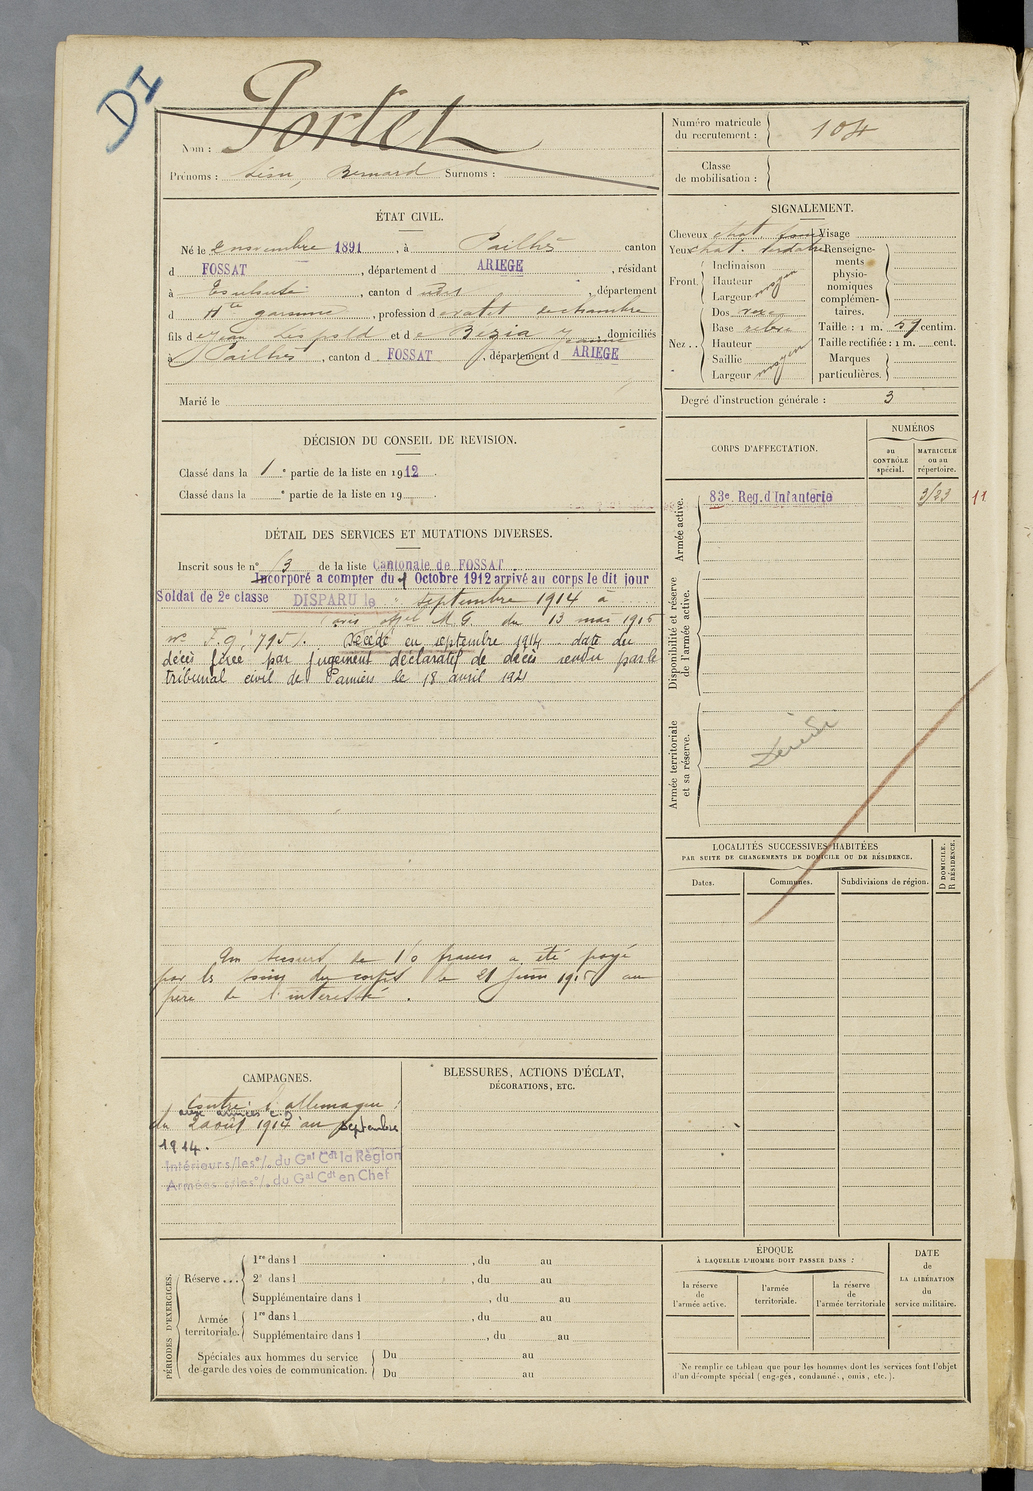 DI
Portet
Nom :
Prénoms : Léon, Bernard Surnoms :
Numéro matricule
du recrutement : 104
Classe
de mobilisation :
ÉTAT CIVIL.
Né le 2 novembre 1891, à Pailhès canton
d FOSSAT, département d ARIEGE, résidant
à, canton d, département
d Hte garonne, profession d de chambre
fils d Jean Léopold et d e Bezia Jeanne domiciliés
à Pailhès, canton d FOSSAT, département d ARIEGE
Marié le
SIGNALEMENT.
Cheveux chat. Visage
Yeux chat. Renseigne-
ments
physio-
nomiques
complémen-
taires.
Front. Inclinaison
Hauteur
Largeur moyen
Nez.. Dos
Base
Hauteur
Saillie
Largeur moyen
Taille : 1 m. 57 centim.
Taille rectifiée : 1 m. cent.
Marques
particulières.
Degré d'instruction générale : 3
DÉCISION DU CONSEIL DE REVISION.
Classé dans la 1e partie de la liste en 1912.
Classé dans la e partie de la liste en 19
CORPS D'AFFECTATION.
NUMÉROS
au
CONTRÔLE
spécial.
MATRICULE
ou au
répertoire.
Armée active.
83e Reg. d'Infanterie 11
Disponibilité et réserve
de l'armée active.
Armée territoriale
et sa réserve.
DÉTAIL DES SERVICES ET MUTATIONS DIVERSES.
Inscrit sous le n° 13 de la liste Cantonale de FOSSAT
Incorporé a compter du 1 Octobre 1912 arrivé au corps le dit jour
Soldat de 2e classe DISPARU le septembre 1914 à
(avis offel M. G. du 13 mai 1915
n° F.g. 795). Décédé en septembre 1914 date du
décès fixée par jugement déclaratif de décès rendu par le
tribunal civil de Pamiers le 18 avril 1921
Un secours de 150 francs a été payé
par les soins du corps le 21 juin 1915 au
père de l'intéressé.
LOCALITÉS SUCCESSIVES HABITÉES
PAR SUITE DE CHANGEMENTS DE DOMICILE OU DE RÉSIDENCE.
Dates.
Communes.
Subdivisions de région.
D DOMICILE.
R RÉSIDENCE.
CAMPAGNES.
Contre l'allemagne :
aux armées
du 2 août 1914 au septembre
1914.
Intérieur s/les o/. du Gal Cdt la Règlon
Armées s/les o/. du Gal Cdt en Chef
BLESSURES, ACTIONS D'ÉCLAT,
DÉCORATIONS, ETC.
PÉRIODES D'EXERCICES.
Réserve ... 1re dans l, du au
2e dans l, du au
Supplémentaire dans l, du au
Armée
territoriale. 1re dans l, du au
Supplémentaire dans l, du au
Spéciales aux hommes du service
de garde des voies de communication. Du au
Du au
ÉPOQUE
À LAQUELLE L'HOMME DOIT PASSER DANS :
la réserve
de
l'armée active.
l'armée
territoriale.
la réserve
de
l'armée territoriale
DATE
de
LA LIBÉRATION
du
service militaire.
Ne remplir ce tableau que pour les hommes dont les services font l'objet
d'un décompte spécial (engagés, condamnés, omis, etc.).